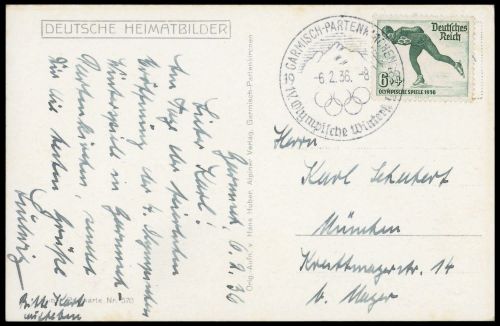 DEUTSCHE HEIMATBILDER
Garmisch, 6. 2. 36
Lieber Karl!
Am Tag der feierlichen
Eröffnung der 4. Olympischen
Winterspiele in Garmisch
Partenkirchen, sendet
Dir die besten Grüße
Ludwig
Bitte Karte
aufheben
Karte Nr. 570
Orig. Aufn. v. Hans Huber, Alpiner Verlag, Garmisch-Partenkirchen
GARMISCH-PARTENKIRCHEN
-6.2.36.-8
IV. Olympische Winter
Deutsches
Reich
6+4
OLYMPISCHE SPIELE 1936
Herrn
Karl Schubert
München
Kreittmayerstr. 14
b. Mayer